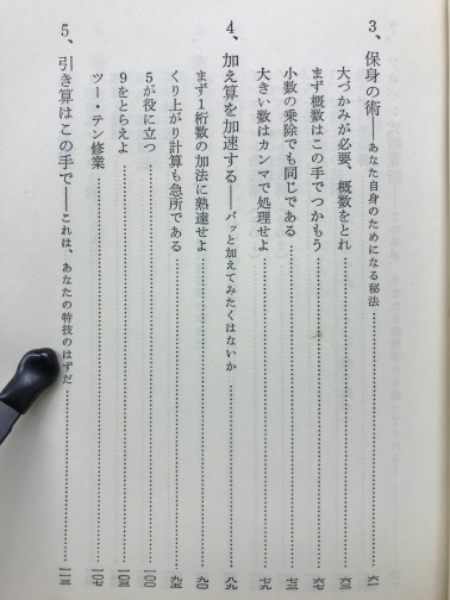 3、保身の術――あなた自身のためになる秘法……六一
大づかみが必要、概数をとれ……六三
まず概数はこの手でつかもう……六七
小数の乗除でも同じである……七三
大きい数はカンマで処理せよ……七九
4、加え算を加速する――パッと加えてみたくはないか……八九
まず1桁数の加法に熟達せよ……九〇
くり上がり計算も急所である……九五
5が役に立つ……一〇〇
9をとらえよ……一〇三
ツー・テン修業……一〇七
5、引き算はこの手で――これは、あなたの特技のはずだ……一一三